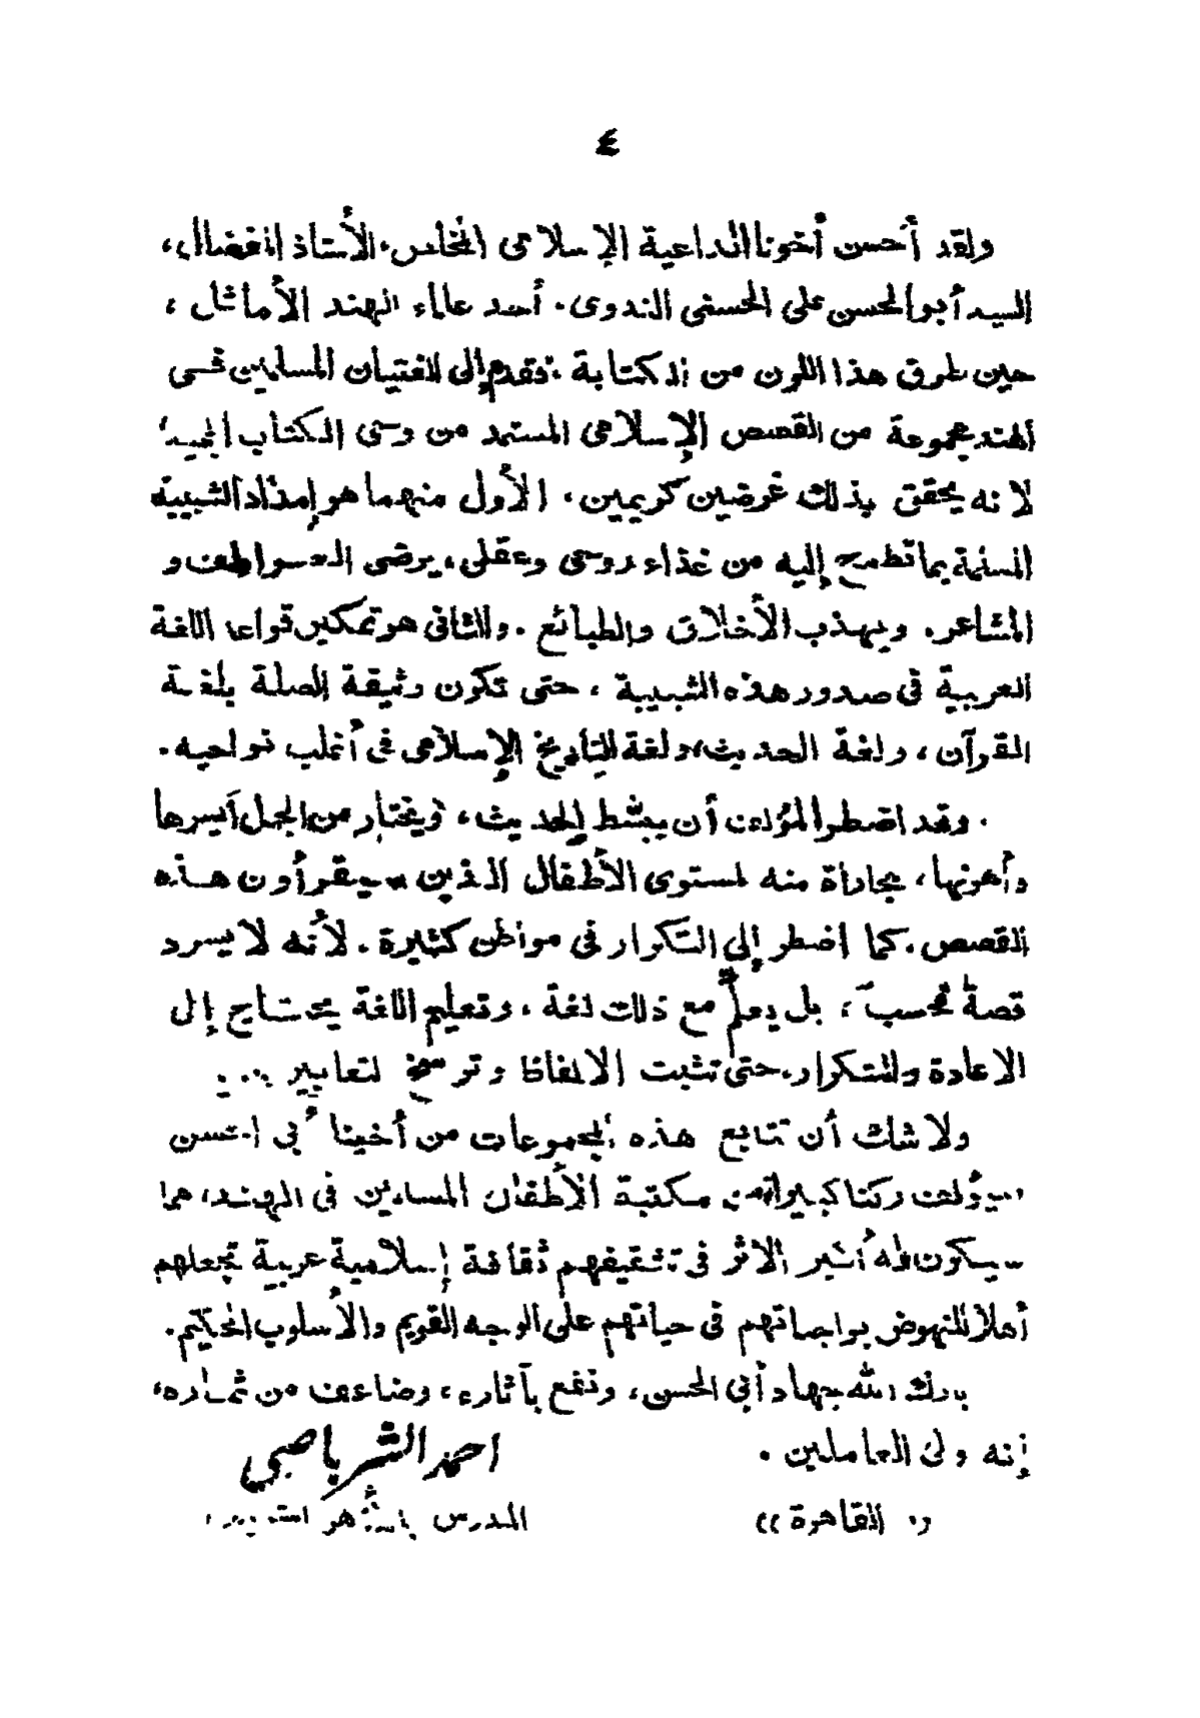 ٤
ولقد أحسن أخونا الداعية الإسلامى المخلص، الأستاذ المفضال،
السيد أبو الحسن على الحسنى الندوى، أحد علماء الهند الأماثل،
حين طرق هذا اللون من الكتابة، فقدم إلى الفتيان المسلمين فى
الهند مجموعة من القصص الإسلامى المستمد من وحى الكتاب المجيد،
لانه يحقق بذلك غرضين كريمين، الأول منهما هو إمداد الشبيبة
المسلمة بما تطمح إليه من غذاء روحى وعقلى، يرضى العواطف و
المشاعر، ويهذب الأخلاق والطبائع. والثانى هو تمكين قواعد اللغة
العربية فى صدور هذه الشبيبة، حتى تكون وثيقة الصلة بلغة
القرآن، ولغة الحديث، ولغة التأريخ الإسلامى فى أغلب نواحيه.
وقد اضطر المؤلف أن يبسّط الحديث، ويختار من الجمل أيسرها
وأهونها، مجاراة منه لمستوى الأطفال الذين سيقرأون هذه
القصص. كما اضطر إلى التكرار فى مواطن كثيرة. لأنه لا يسرد
قصة فحسب، بل يعلّم مع ذلك لغة، وتعليم اللغة يحتاج إلى
الاعادة والتكرار، حتى تثبت الالفاظ وترسخ التعابير ...
ولا شك أن تتابع هذه المجموعات من أخينا أبى الحسن
سيؤلف ركنا كبيرا من مكتبة الأطفال المسلمين فى الهند، مما
سيكون له أكبر الاثر فى تثقيفهم ثقافة إسلامية عربية تجعلهم
أهلا للنهوض بواجباتهم فى حياتهم على الوجه القويم والأسلوب الحكيم.
بارك الله جهاد أبى الحسن، ونفع بآثاره، وضاعف من ثماره،
إنه ولى العاملين.
احمد الشرباصي
(( القاهرة ))
المدرس بالأزهر الشريف